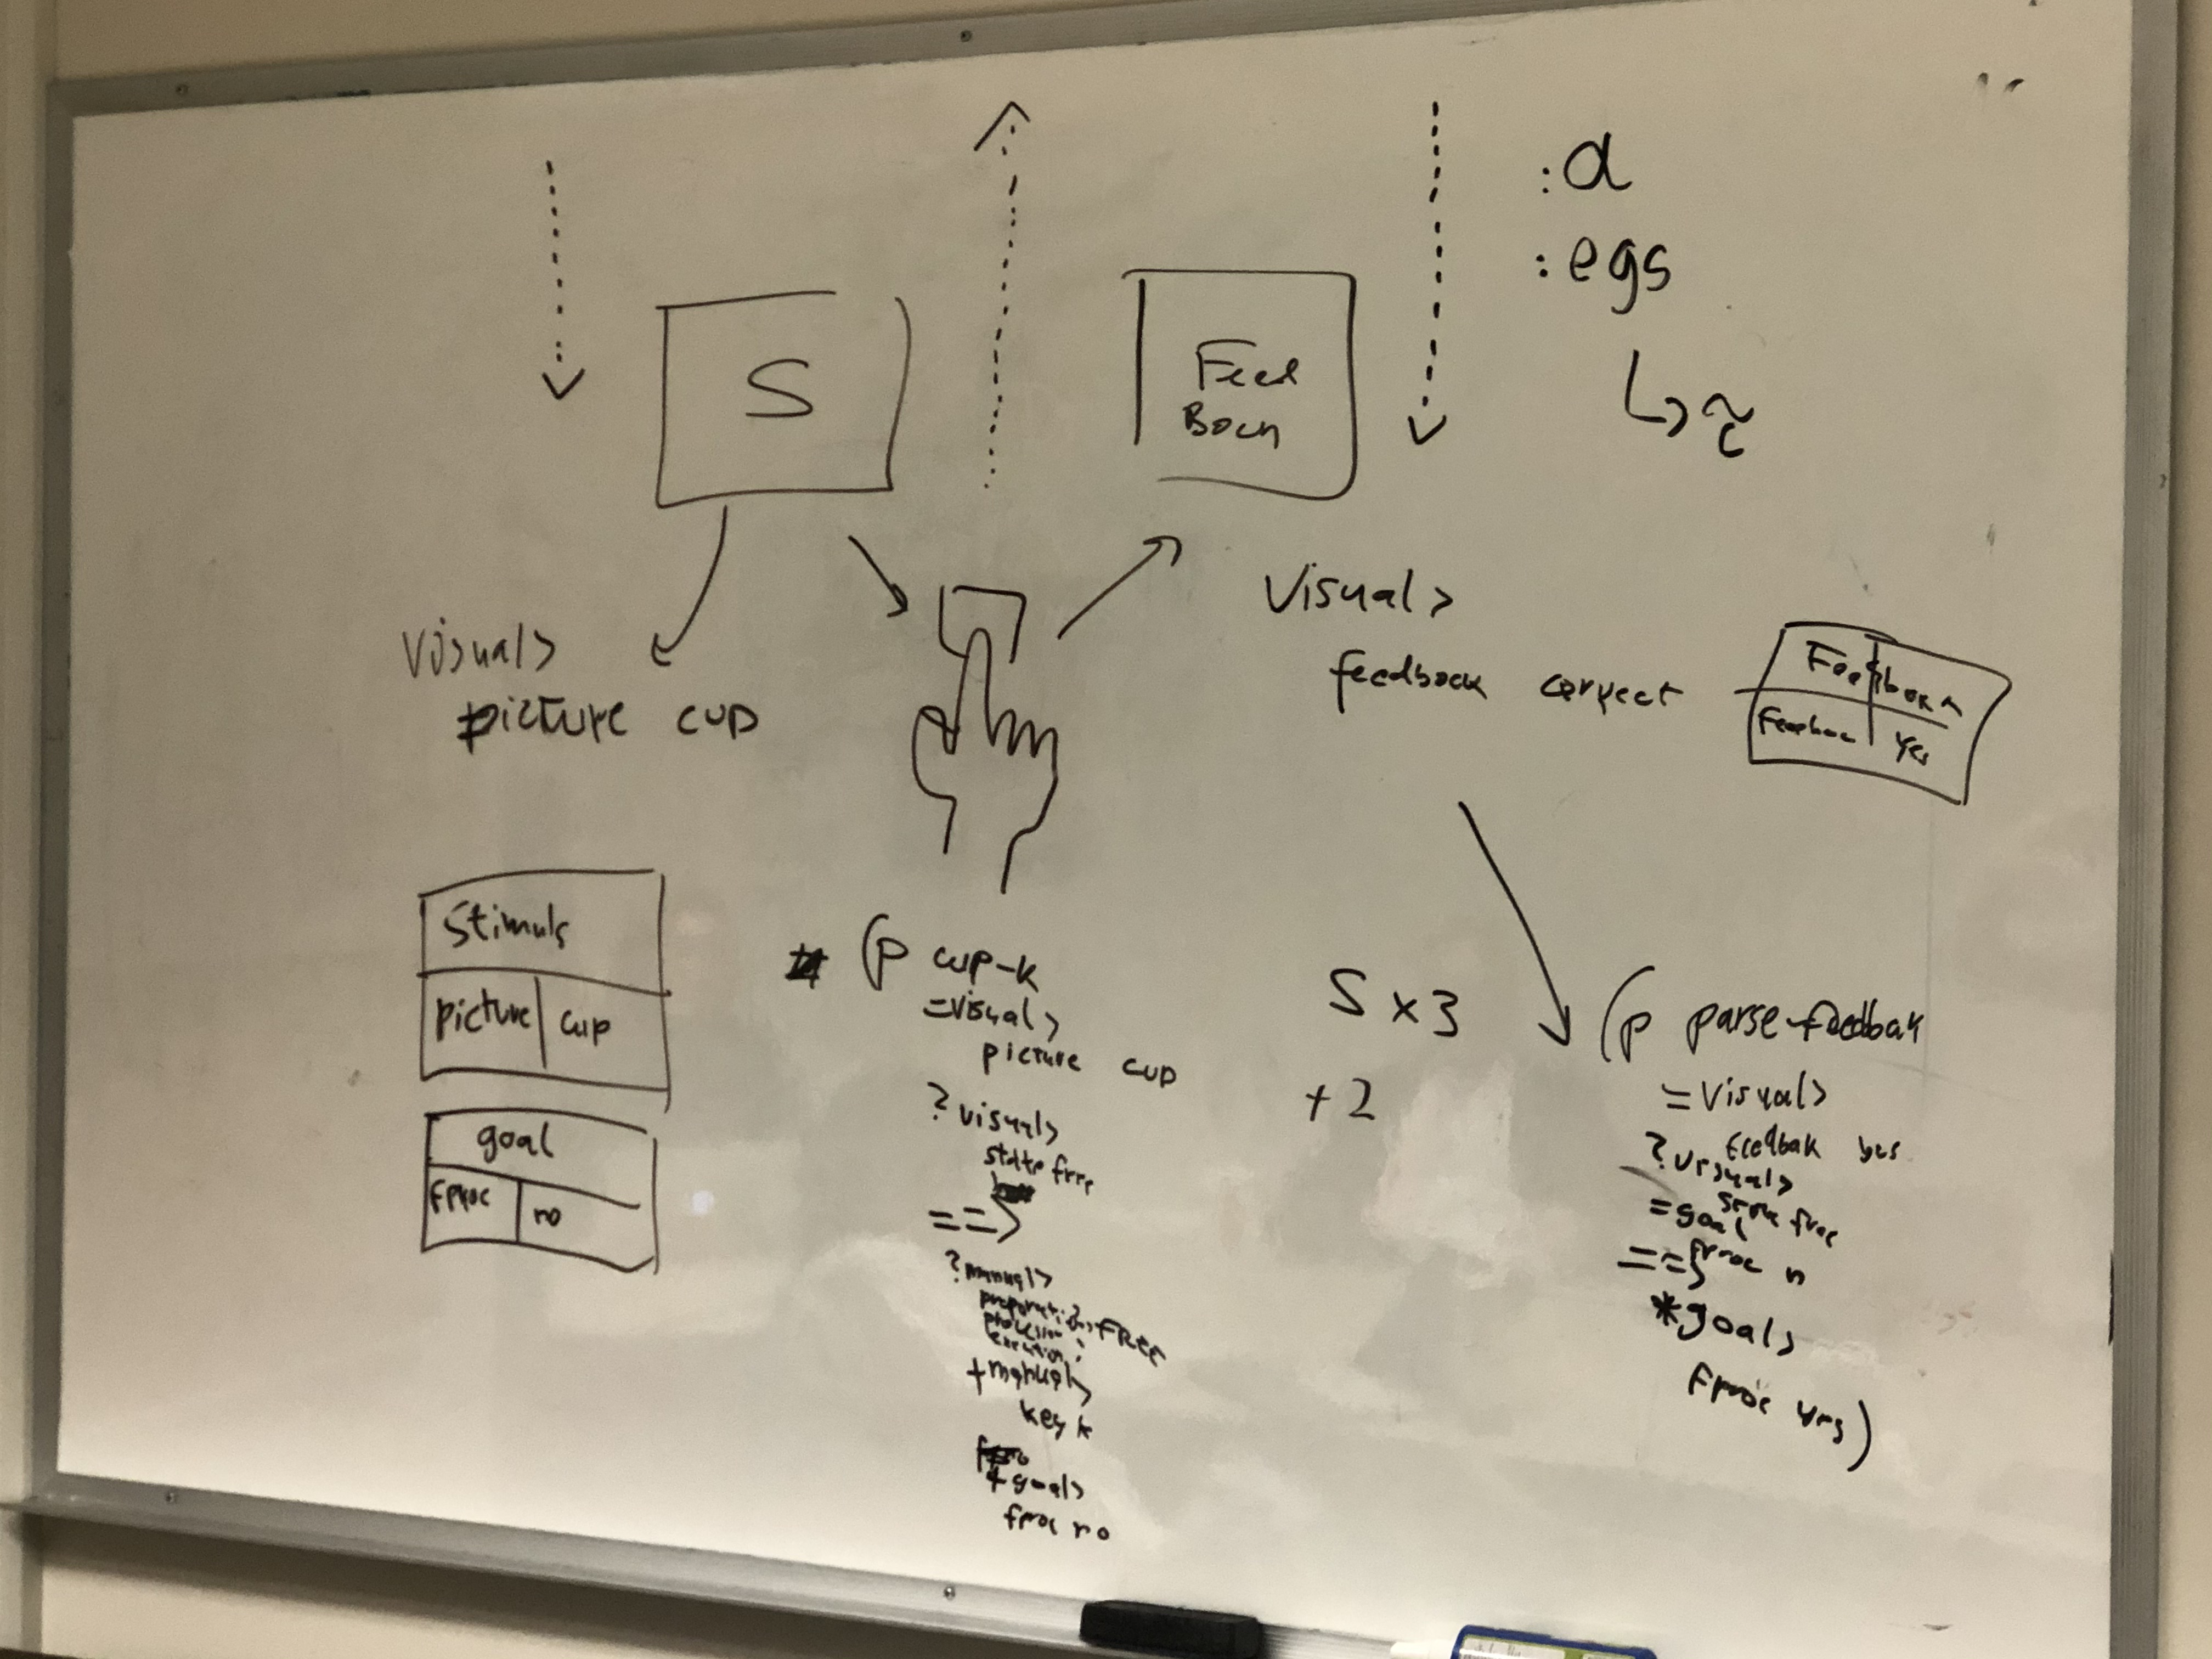 :α
:egs
S
Feed
Visual>
picture cup
Visual>
feedback correct
Feedback
Yes
Stimuls
picture | cup
goal
Fproc | no
(p cup-k
=visual>
picture cup
?visual>
state free
==>
?manual>
preparation FREE
processor
execution
+manual>
key k
*goal>
fproc no
S x 3
+ 2
(p parse-feedbak
=Visual>
feedbak
?visual>
state free
=goal
fproc n
==>
*goal>
Fproc yes)